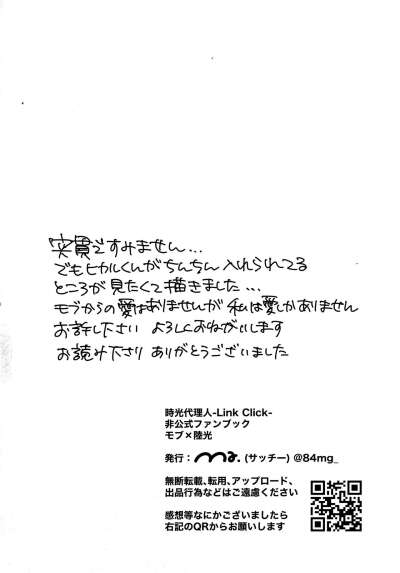 突貫ですみません…
でもヒカルくんがちんちん入れられてる
ところが見たくて描きました…
モブからの愛はありませんが 私は愛しかありません
お許し下さい よろしくおねがいします
お読み下さり ありがとうございました
時光代理人-Link Click-
非公式ファンブック
モブ×陸光
発行： (サッチー) @84mg_
無断転載、転用、アップロード、
出品行為などはご遠慮ください
感想等なにかございましたら
右記のQRからお願いします